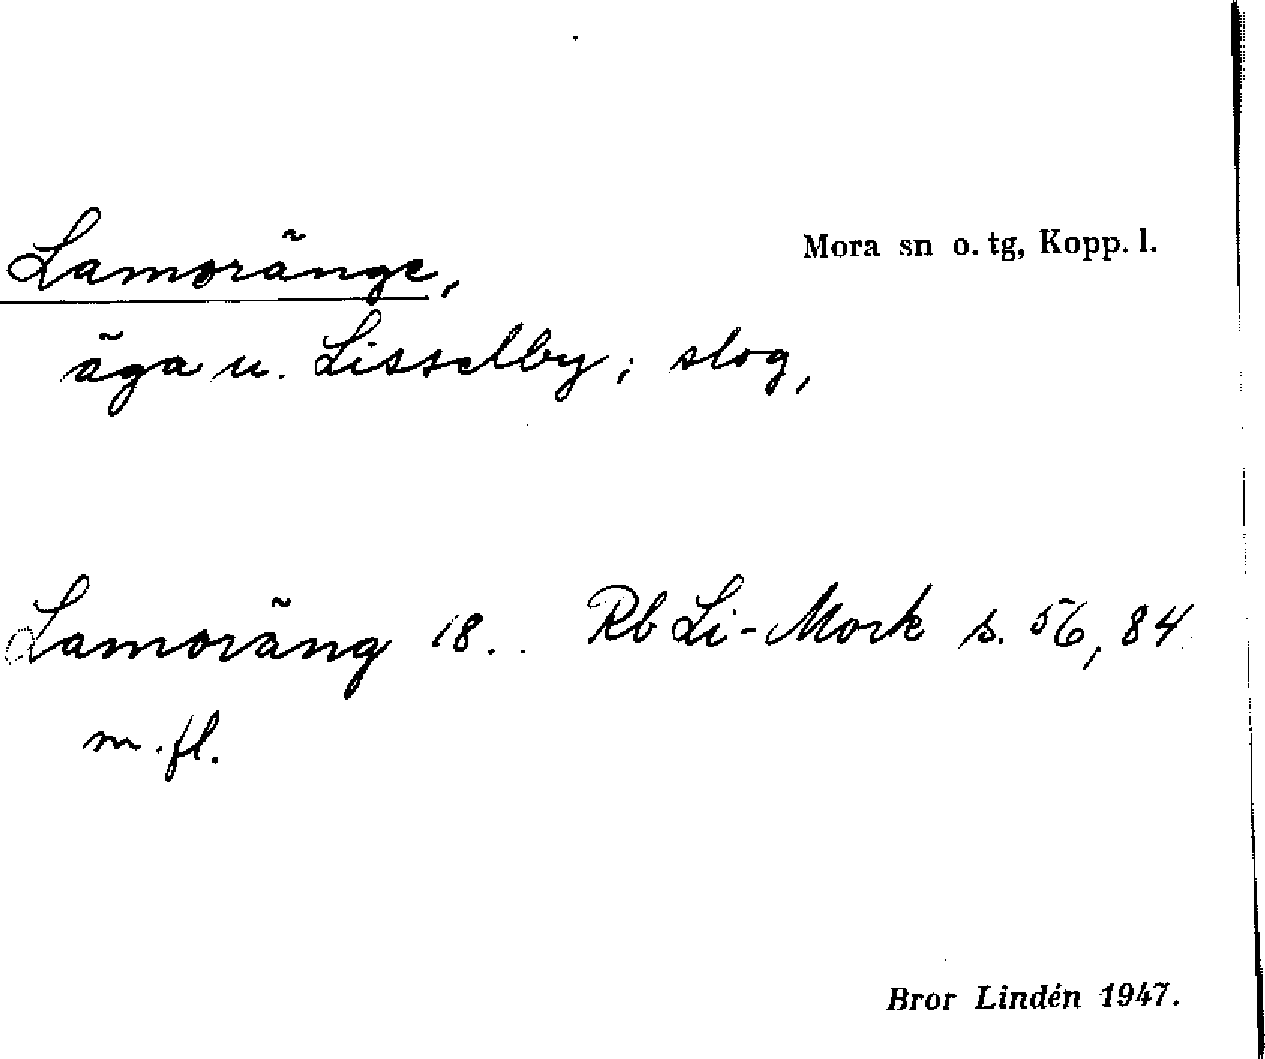 Lamoränge,
Mora sn o. tg, Kopp. l.
äga u. Lisselby; slog,
Lamoräng 18. . Rb Li-Mork s. 56, 84
m. fl.
Bror Lindén 1947.